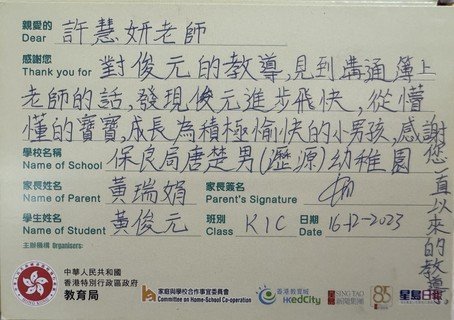 親愛的
Dear 許慧妍老師
感謝您
Thank you for 對俊元的教導，見到溝通簿上
老師的話，發現俊元進步飛快，從懵
懂的寶寶，成長為積極愉快的小男孩，感謝
您一直以來的教導。
學校名稱
Name of School 保良局唐楚男(瀝源)幼稚園
家長姓名 家長簽名
Name of Parent 黃瑞娟 Parent's Signature
學生姓名 班別 日期
Name of Student 黃俊元 Class K1C Date 16-12-2023
主辦機構 Organisers:
中華人民共和國
香港特別行政區政府
教育局
家庭與學校合作事宜委員會
Committee on Home-School Co-operation
香港教育城
HKedCity
SING TAO
星島新聞集團
85
星島日報